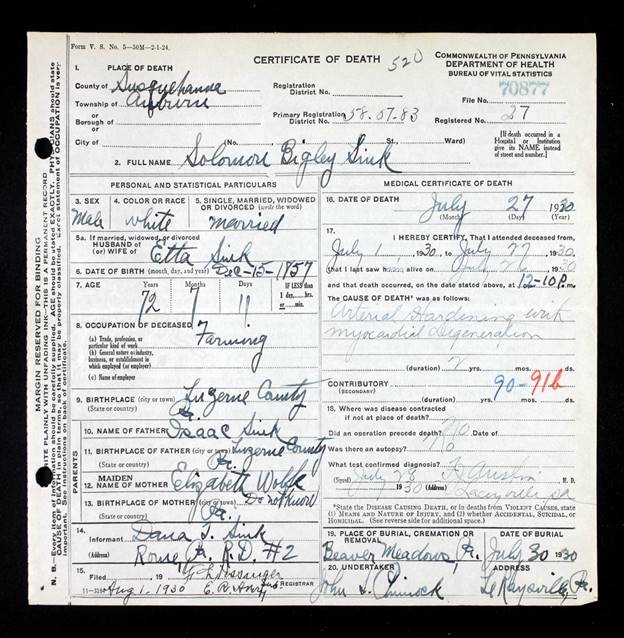 Form V. S. No. 5—50M—2-1-24.
CERTIFICATE OF DEATH 520
COMMONWEALTH OF PENNSYLVANIA
DEPARTMENT OF HEALTH
BUREAU OF VITAL STATISTICS
1. PLACE OF DEATH
County of Susquehanna
Township of Auburn
or
Borough of
or
City of
Registration District No.
Primary Registration District No. 58.07.83
File No. 70877
Registered No. 27
(No. St. Ward)
[If death occurred in a Hospital or Institution give its NAME instead of street and number.]
2. FULL NAME Solomon Bigley Sink
PERSONAL AND STATISTICAL PARTICULARS
3. SEX Male
4. COLOR OR RACE white
5. SINGLE, MARRIED, WIDOWED OR DIVORCED (write the word) married
5a. If married, widowed or divorced
HUSBAND of
(or) WIFE of Etta Sink
6. DATE OF BIRTH (month, day, and year) Dec-15-1857
7. AGE Years 72 Months 7 Days 11 IF LESS than 1 day, hrs. or min.
8. OCCUPATION OF DECEASED
(a) Trade, profession, or particular kind of work Farming
(b) General nature of industry, business, or establishment in which employed (or employer)
(c) Name of employer
9. BIRTHPLACE (city or town) Luzerne County
(State or country) Pa.
PARENTS
10. NAME OF FATHER Isaac Sink
11. BIRTHPLACE OF FATHER (city or town) Luzerne County
(State or country) Pa.
12. MAIDEN NAME OF MOTHER Elizabeth
13. BIRTHPLACE OF MOTHER (city or town) Do not know
(State or country) Pa.
14. Informant Dana T. Sink
(Address) Rome, Pa. R.D. #2
15. Filed Aug 1-1930 19
REGISTRAR
MEDICAL CERTIFICATE OF DEATH
16. DATE OF DEATH July 27 1930
(Month) (Day) (Year)
17. I HEREBY CERTIFY, That I attended deceased from
July 1 1930, to July 27, 1930
that I last saw alive on 1930
and that death occurred, on the date stated above, at 12-10 P.m.
The CAUSE OF DEATH* was as follows:
Arterial Hardening with
myocardial degeneration
(duration) 2 yrs. mos. ds.
CONTRIBUTORY (SECONDARY) 90-91b
(duration) yrs. mos. ds.
18. Where was disease contracted
if not at place of death?
Did an operation precede death? No Date of
Was there an autopsy? No
What test confirmed diagnosis?
(Signed) M. D.
July 28 1930 (Address) Laceyville Pa
*State the DISEASE CAUSING DEATH, or in deaths from VIOLENT CAUSES, state (1) MEANS AND NATURE OF INJURY, and (2) whether ACCIDENTAL, SUICIDAL, or HOMICIDAL. (See reverse side for additional space.)
19. PLACE OF BURIAL, CREMATION OR REMOVAL Beaver Meadows, Pa. DATE OF BURIAL July 30 1930
20. UNDERTAKER John S. (Address) LeRaysville, Pa.
MARGIN RESERVED FOR BINDING
WRITE PLAINLY WITH UNFADING INK—THIS IS A PERMANENT RECORD
N. B.—Every item of information should be carefully supplied. AGE should be stated EXACTLY. PHYSICIANS should state CAUSE OF DEATH in plain terms, so that it may be properly classified. Exact statement of OCCUPATION is very important. See instructions on back of certificate.